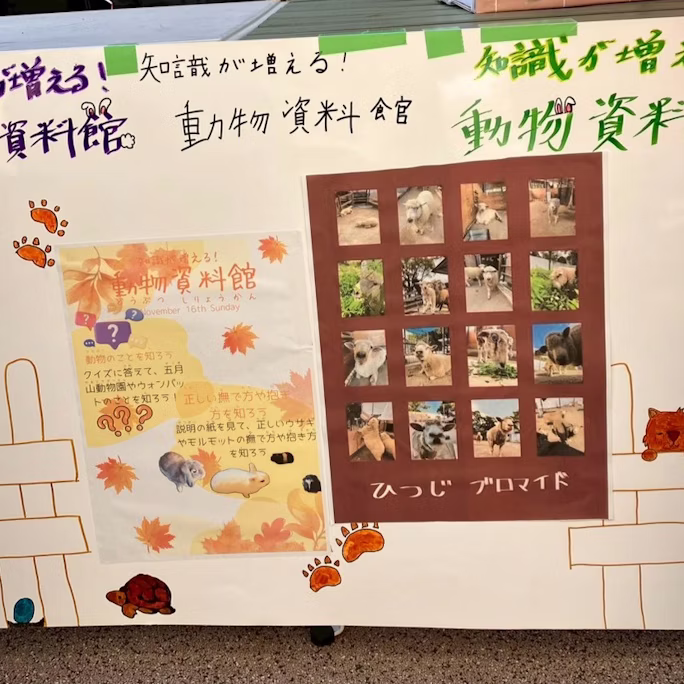 が増える!
資料館
知識が増える!
動物 資料館
知識が増え
動物 資料
知識が増える!
動物資料館
どうぶつ しりょうかん
November 16th Sunday
動物のことを知ろう
クイズに答えて、五月
山動物園やウォンバッ
トのことを知ろう!
???
正しい撫で方や抱き
方を知ろう
説明の紙を見て、正しいウサギ
やモルモットの撫で方や抱き方
を知ろう
ひつじ ブロマイド